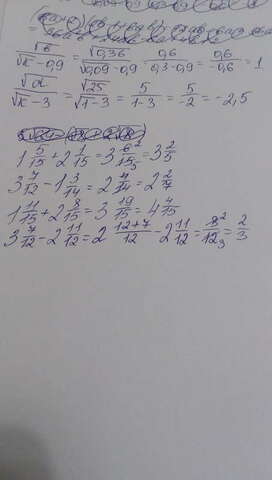 √в/(√к-0,9) = √0,36/(√0,09-0,9) = 0,6/(0,3-0,9) = 0,6/-0,6 = 1
√a/(√к-3) = √25/(√1-3) = 5/(1-3) = 5/-2 = -2,5
1 5/15 + 2 1/15 = 3 6²/15₅ = 3 2/5
3 7/12 - 1 3/14 = 2 4/14 = 2 2/7
1 11/15 + 2 8/15 = 3 19/15 = 4 4/15
3 7/12 - 2 11/12 = 2 (12+7)/12 - 2 11/12 = 8²/12₃ = 2/3